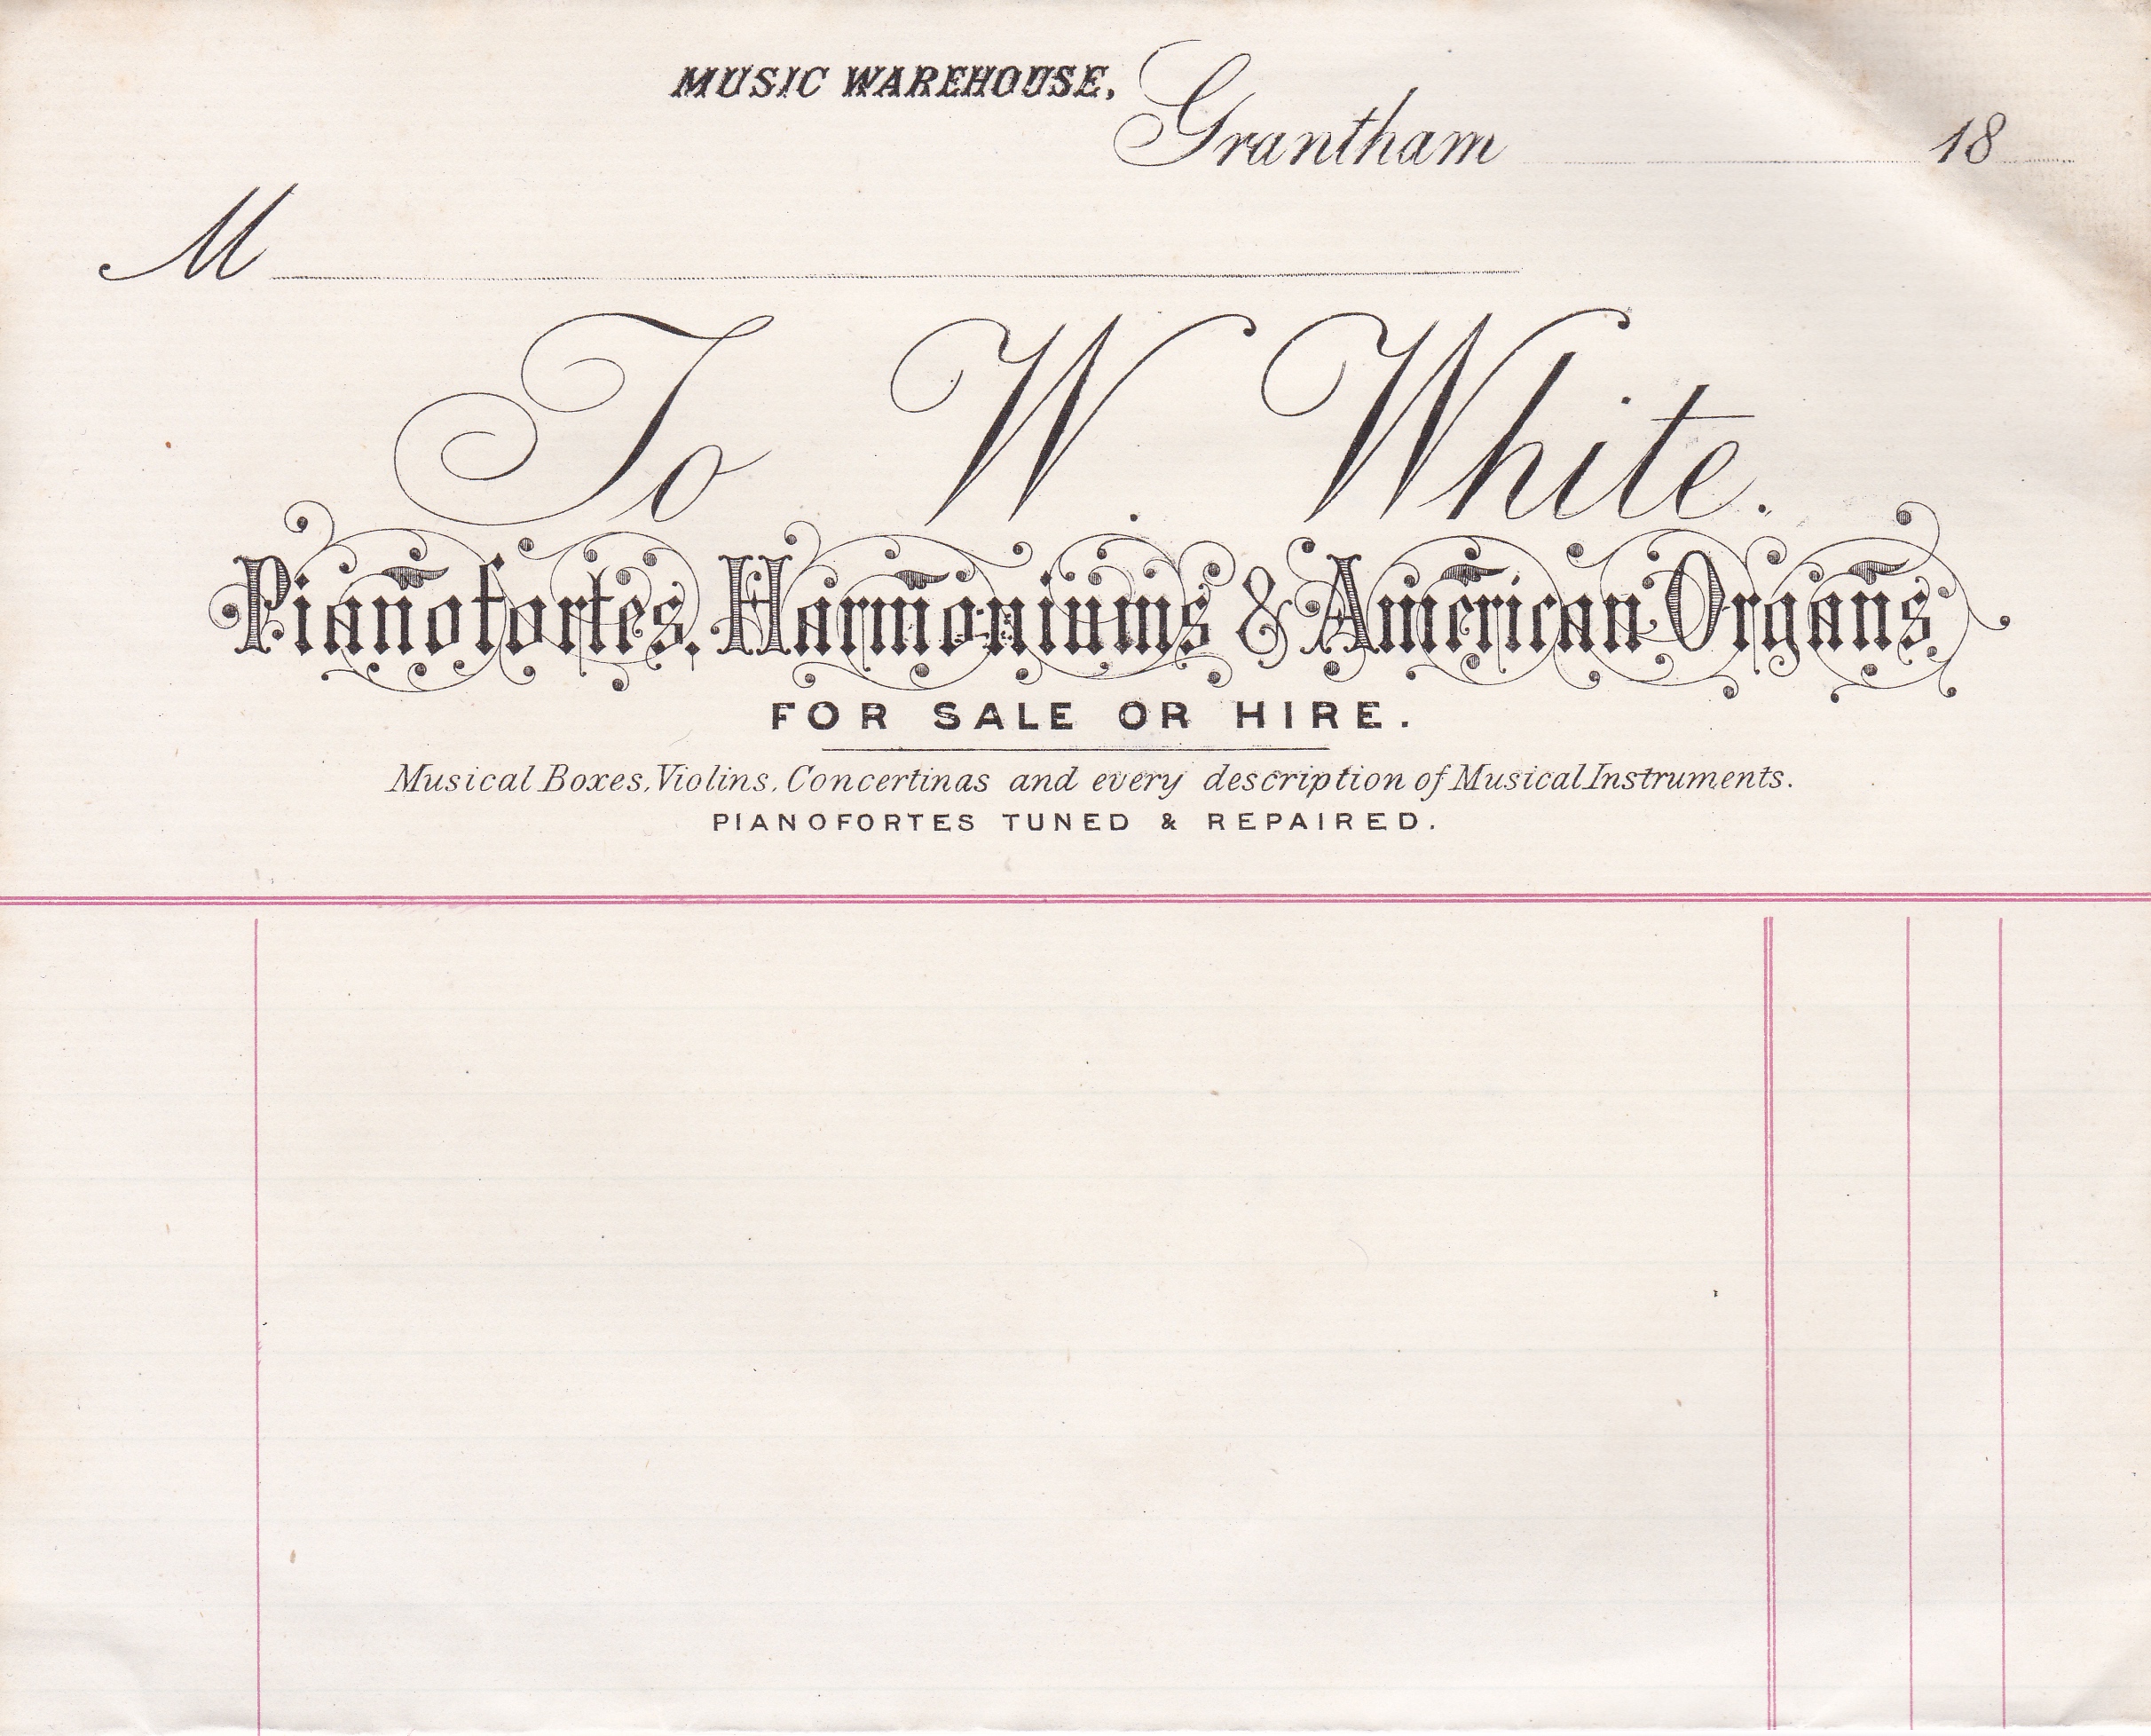 MUSIC WAREHOUSE,
Grantham 18
M
To W. White.
Pianofortes, Harmoniums & American Organs,
FOR SALE OR HIRE.
Musical Boxes, Violins, Concertinas and every description of Musical Instruments.
PIANOFORTES TUNED & REPAIRED.